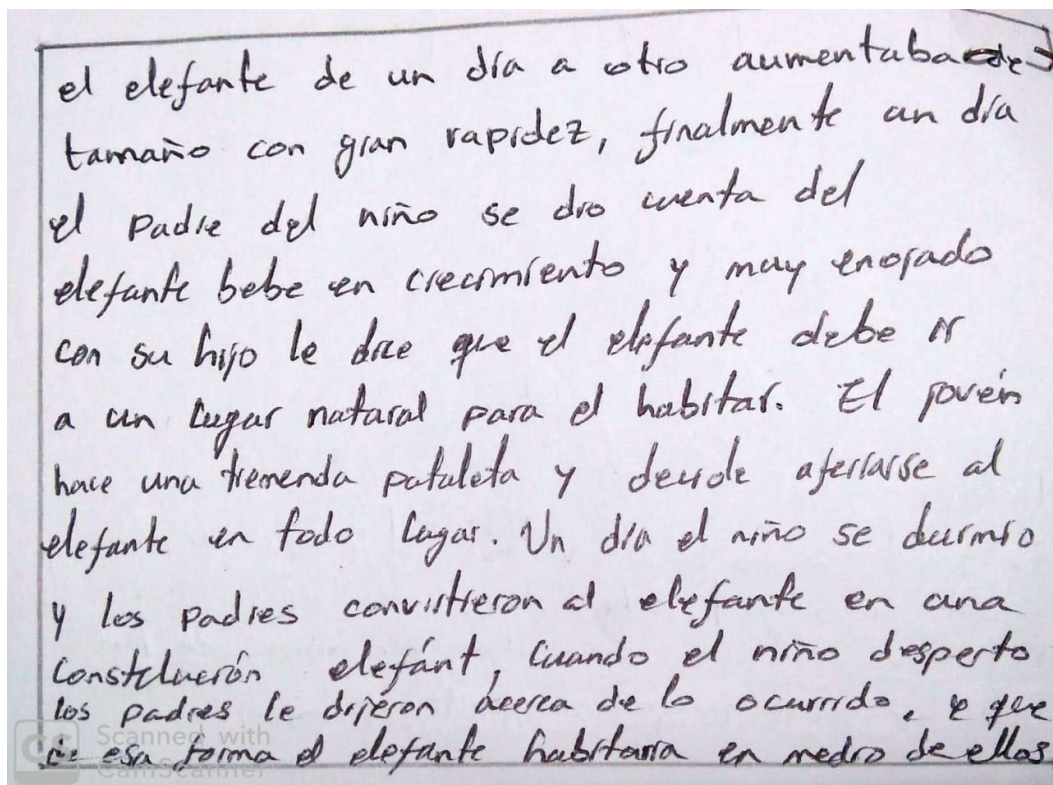 el elefante de un día a otro aumentaba de
tamaño con gran rapidez, finalmente un día
el padre del niño se dio cuenta del
elefante bebe en crecimiento y muy enojado
con su hijo le dice que el elefante debe ir
a un lugar natural para el habitar. El joven
hace una tremenda pataleta y decide aferrarse al
elefante en todo lugar. Un día el niño se durmio
y los padres convirtieron al elefante en una
constelución elefánt, Cuando el niño desperto
los padres le dijeron acerca de lo ocurrido, y que
de esa forma el elefante habitaria en medio de ellos
CS Scanned with
CamScanner